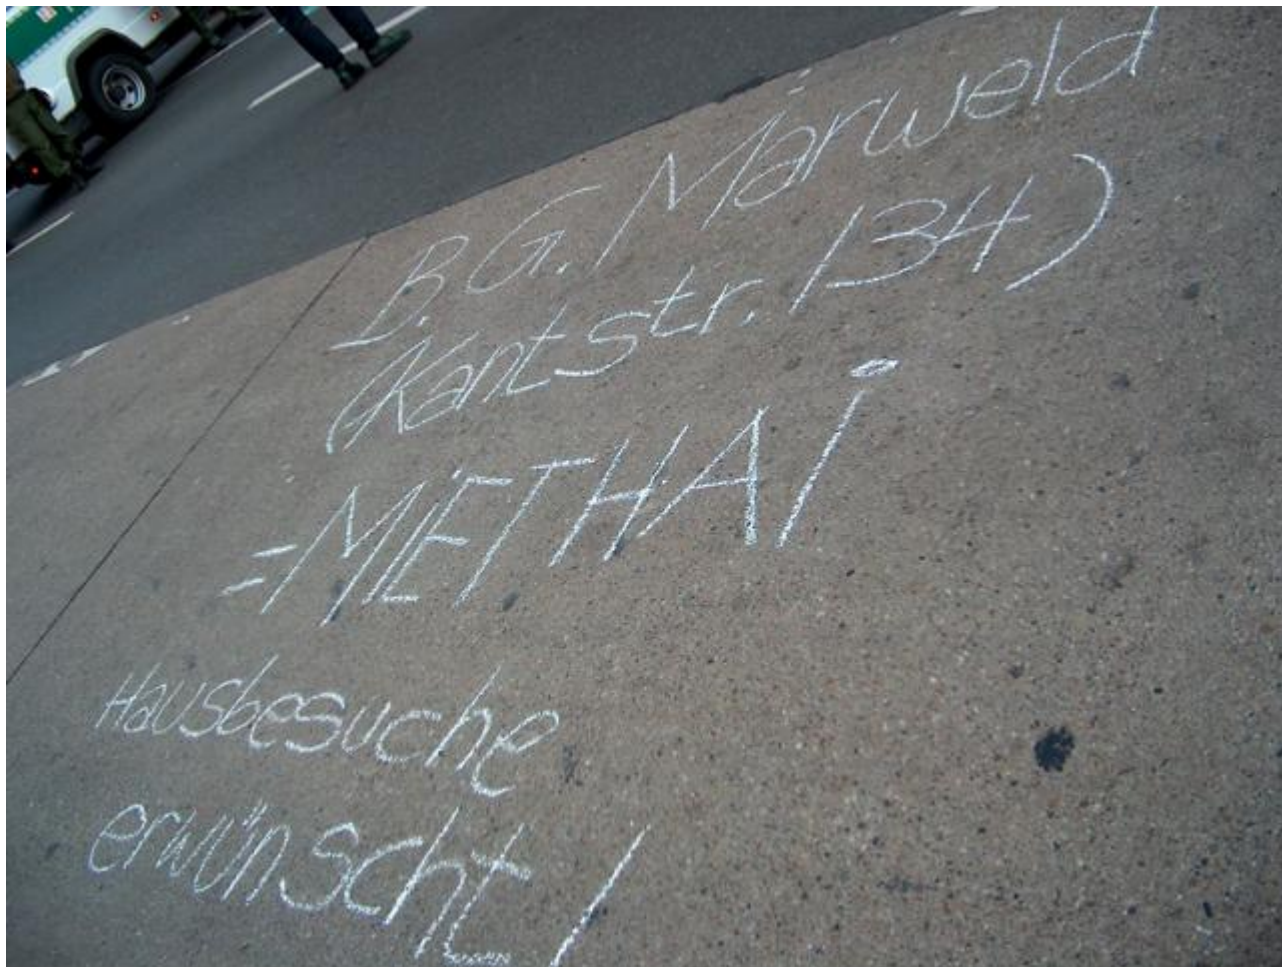 B.G. Märweld
(Kantstr. 134)
=METHAi
Hausbesuche
erwünscht!